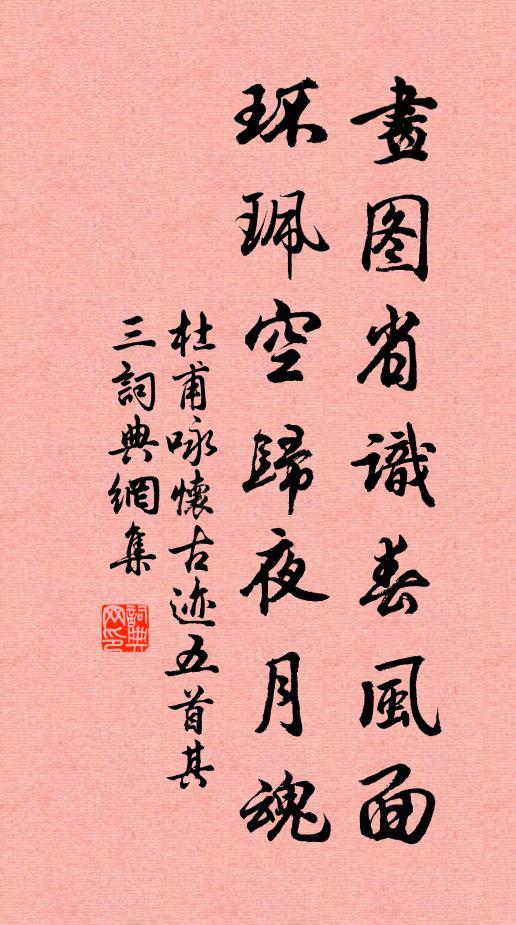 畫图省識春風面
环珮空歸夜月魂
杜甫咏懷古迹五首其
三詞典網集
詞典网印